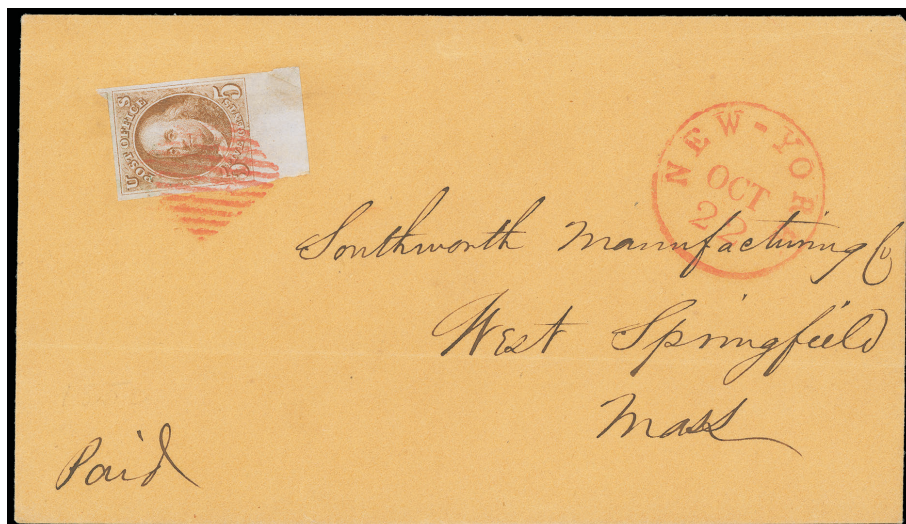 U S
POST OFFICE
5
FIVE CENTS
5
NEW-YORK
OCT
22
Southworth Manufacturing Co
West Springfield
Mass
Paid